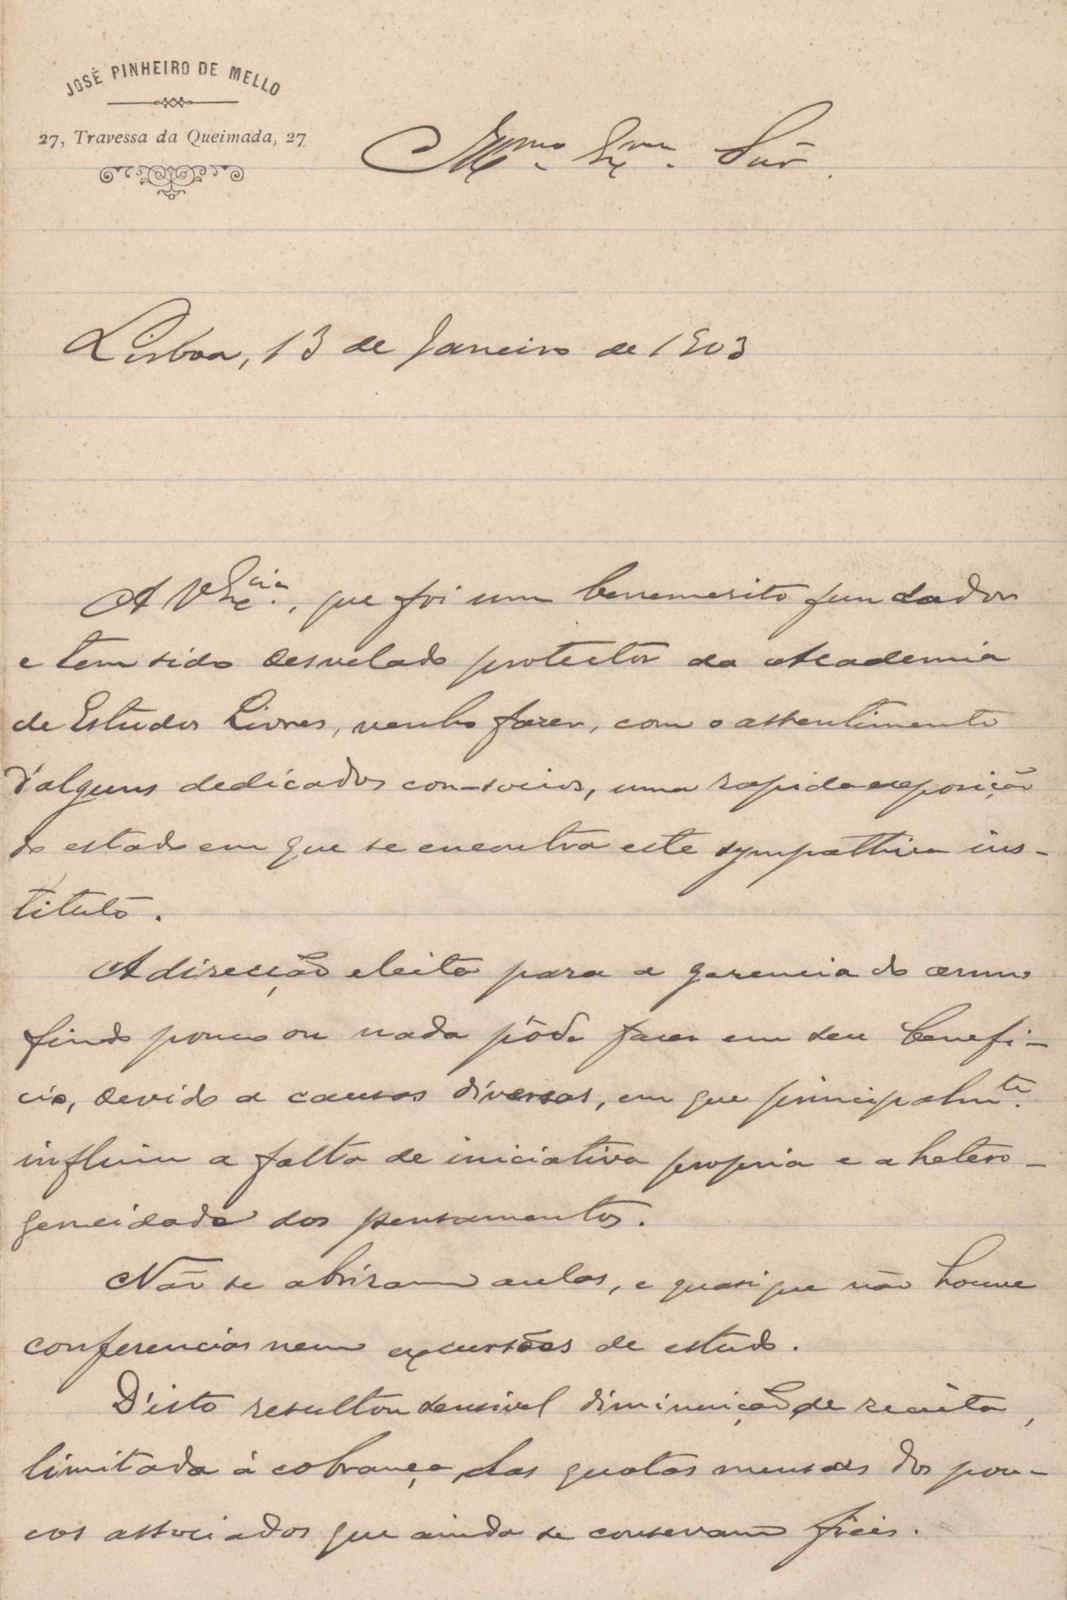 JOSÉ PINHEIRO DE MELLO
27, Travessa da Queimada, 27
Illmo. Exmo. Snr.
Lisboa, 13 de Janeiro de 1903
A V. Excia., que foi um benemerito fundador
e tem sido desvelado protector da Academia
de Estudos Livres, venho fazer, com o assentimento
d'alguns dedicados con-socios, uma rapida exposição
do estado em que se encontra este sympathico ins-
tituto.
A direcção eleita para a gerencia do anno
findo pouco ou nada pôde fazer em seu benefi-
cio, devido a causas diversas, em que principalmte.
influiu a falta de iniciativa propria e a hetero-
geneidade dos pensamentos.
Não se abriram aulas, e quasi que não houve
conferencias nem excursões de estudo.
D'isto resultou sensivel diminuição de receita,
limitada á cobrança das quotas mensaes dos pou-
cos associados que ainda se conservam fieis.